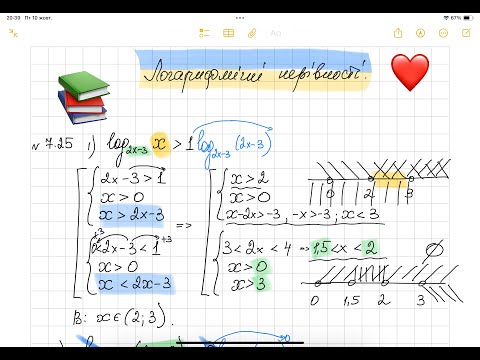 20:39 Пт 10 жовт.
67%
Aa
Логарифмічні нерівності.
N 7.25 1) log₂ₓ₋₃ x > 1 log₂ₓ₋₃ (2x-3)
2x-3>1
x>0
x>2x-3
=>
x>2
x>0
x-2x>-3, -x>-3; x<3
0 2 3
+3 +3
0<2x-3<1
x>0
x<2x-3
3<2x<4 => 1,5<x<2
x>0
x>3
∅
0 1,5 2 3
В: x∈(2;3).